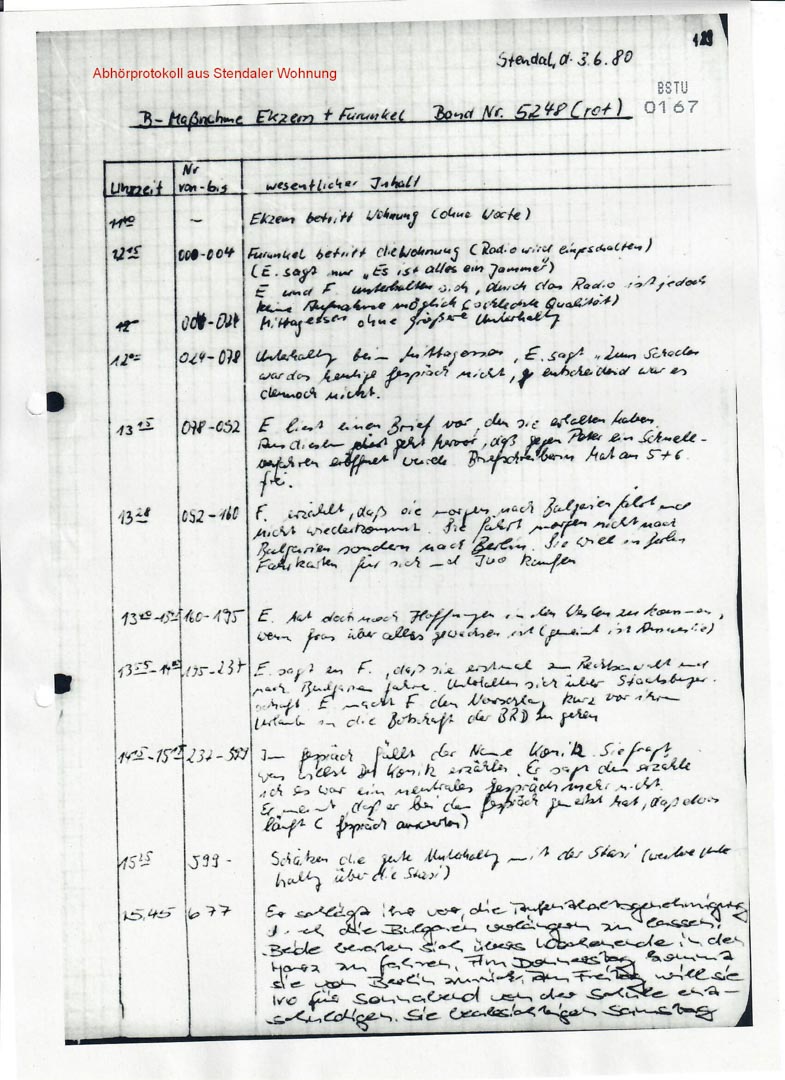 129
Stendal, d. 3.6.80
Abhörprotokoll aus Stendaler Wohnung
BSTU
0167
B-Maßnahme Ekzem + Furunkel Band Nr. 5248 (rot)
Uhrzeit Nr von-bis wesentlicher Inhalt
11 – Ekzem betritt Wohnung (ohne Worte)
12 15 000-004 Furunkel betritt die Wohnung (Radio wird eingeschalten)
(E. sagt nur „Es ist alles ein Jammer")
E und F. unterhalten sich, durch das Radio ist jedoch
keine Aufnahme möglich (schlechte Qualität)
12 Mittagessen ohne größere Unterhaltg
12 024-078 Unterhaltg beim Mittagessen, E. sagt „Zum Schaden
war das heutige Gespräch nicht, entscheidend war es
dennoch nicht.
13 15 078-092 E liest einen Brief vor, den sie erhalten haben.
Aus diesem geht hervor, daß gegen Peter ein Schnell-
verfahren eröffnet wurde. Briefschreiberin hat am 5+6
frei.
13 28 092-160 F. erzählt, daß sie morgen nach Bulgarien fährt und
nicht wiederkommt. Sie fährt morgen nicht nach
Bulgarien sondern nach Berlin. Sie will in Berlin
Fahrkarten für sich und Ivo kaufen
160-195 E. hat doch noch Hoffnungen in den Westen zu kommen,
wenn gras über alles gewachsen ist (gemeint ist Amnestie)
195-237 E. sagt zu F., daß sie erstmal zum Rechtsanwalt und
nach Bulgarien fahre. Unterhalten sich über Staatsbürger-
schaft. E macht F den Vorschlag kurz vor ihrem
Urlaub in die Botschaft der BRD zu gehen
Im Gespräch fällt der Name Konitz. Sie fragt
was willst Du Konitz erzählen. Er sagt dem erzähle
ich es war ein neutrales Gespräch mehr nicht.
Er meint, daß er bei dem Gespräch gemerkt hat, daß etwas
läuft (Gespräch auswerten)
15 25 599 - Schätzen die gute Unterhaltg mit der Stasi (weitere Unter
haltg über die Stasi)
15.45 677 Er schlägt ihr vor, die Aufenthaltsgenehmigung
durch die Bulgaren verlängern zu lassen.
Beide beraten sich übers Wochenende in den
Harz zu fahren. Am Donnerstag kommt
sie von Berlin zurück, am Freitag will sie
Ivo für Sonnabend von der Schule ent-
schuldigen. Sie beabsichtigen Samstag